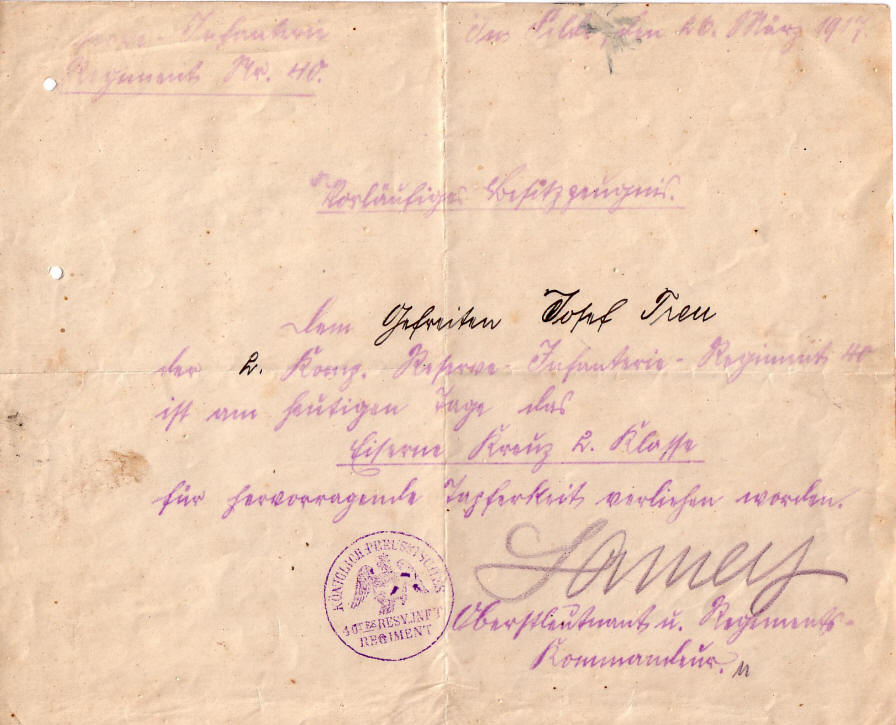 Reserve-Infanterie
Regiment Nr. 40.
Im Felde, den 26. März 1917.
Vorläufiges Besitzzeugnis.
Dem Gefreiten Josef Treu
der 2. Komp. Reserve-Infanterie-Regiments 40
ist am heutigen Tage das
Eiserne Kreuz 2. Klasse
für hervorragende Tapferkeit verliehen worden.
KÖNIGLICH-PREUSSISCHES
40TES RESV. INFT
REGIMENT
Lamey
Oberstleutnant u. Regiments-
Kommandeur.